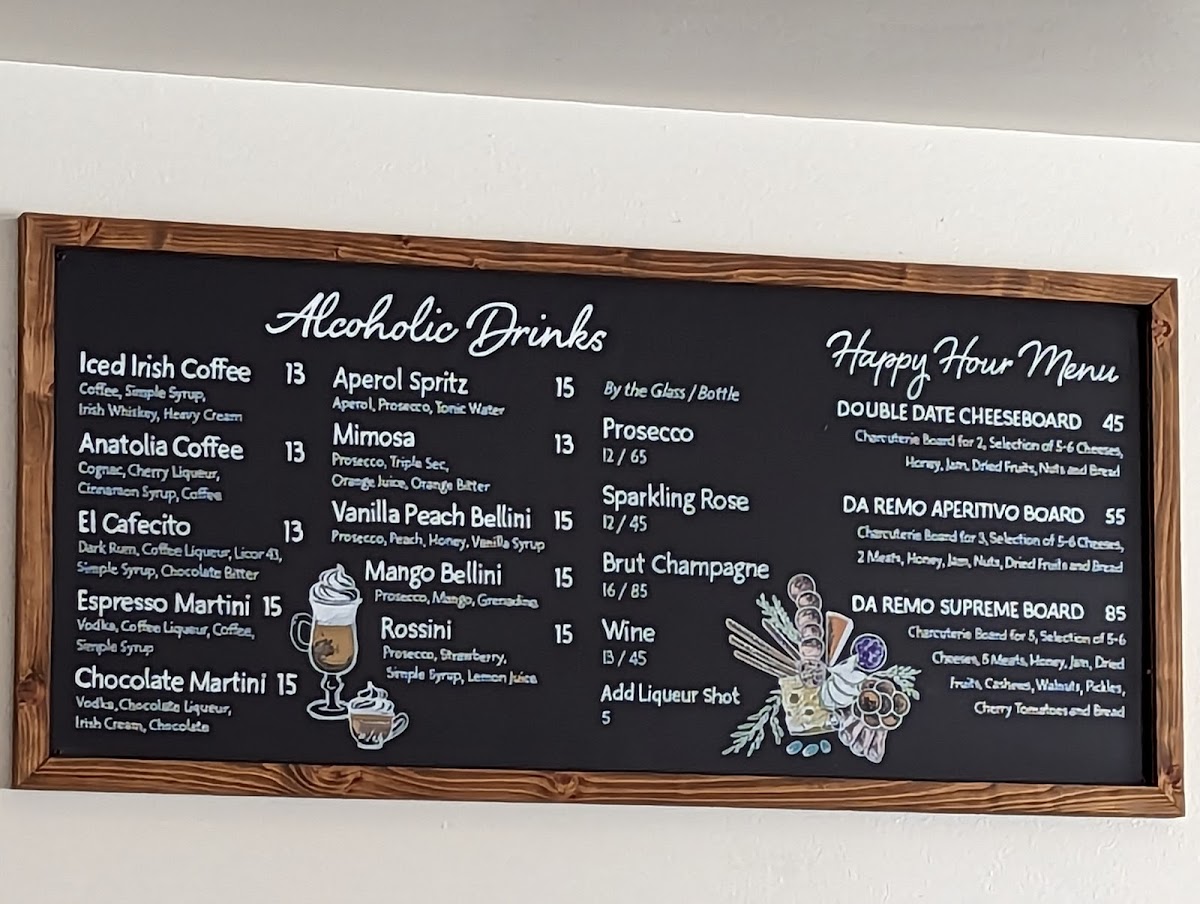 Alcoholic Drinks
Iced Irish Coffee 13
Coffee, Simple Syrup,
Irish Whiskey, Heavy Cream
Anatolia Coffee 13
Cognac, Cherry Liqueur,
Cinnamon Syrup, Coffee
El Cafecito 13
Dark Rum, Coffee Liqueur, Licor 43,
Simple Syrup, Chocolate Bitter
Espresso Martini 15
Vodka, Coffee Liqueur, Coffee,
Simple Syrup
Chocolate Martini 15
Vodka, Chocolate Liqueur,
Irish Cream, Chocolate
Aperol Spritz 15
Aperol, Prosecco, Tonic Water
Mimosa 13
Prosecco, Triple Sec,
Orange Juice, Orange Bitter
Vanilla Peach Bellini 15
Prosecco, Peach, Honey, Vanilla Syrup
Mango Bellini 15
Prosecco, Mango, Grenadine
Rossini 15
Prosecco, Strawberry,
Simple Syrup, Lemon Juice
By the Glass / Bottle
Prosecco
12 / 65
Sparkling Rose
12 / 45
Brut Champagne
16 / 85
Wine
13 / 45
Add Liqueur Shot
5
Happy Hour Menu
DOUBLE DATE CHEESEBOARD 45
Charcuterie Board for 2, Selection of 5-6 Cheeses,
Honey, Jam, Dried Fruits, Nuts and Bread
DA REMO APERITIVO BOARD 55
Charcuterie Board for 3, Selection of 5-6 Cheeses,
2 Meats, Honey, Jam, Nuts, Dried Fruits and Bread
DA REMO SUPREME BOARD 85
Charcuterie Board for 5, Selection of 5-6
Cheeses, 5 Meats, Honey, Jam, Dried
Fruits, Cashews, Walnuts, Pickles,
Cherry Tomatoes and Bread